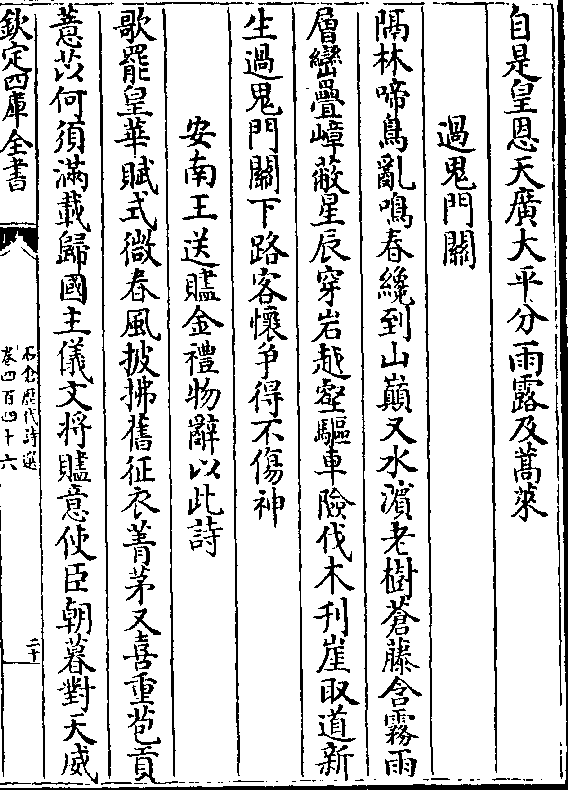 自是皇恩天廣大平分雨露及蒿萊
過鬼門關
隔林啼鳥亂鳴春纔到山巔又水濵老樹蒼藤含霧雨
層巒疊嶂蔽星辰穿岩越壑驅車險伐木刋崖取道新
生過鬼門關下路客懷爭得不傷神
安南王送贐金禮物辭以此詩
歌罷皇華賦式微春風披拂舊征衣菁茅又喜重苞貢
薏苡何須滿載歸國主儀文將贐意使臣朝暮對天威
欽定四庫全書
石倉歷代詩選
卷四百四十六
二十